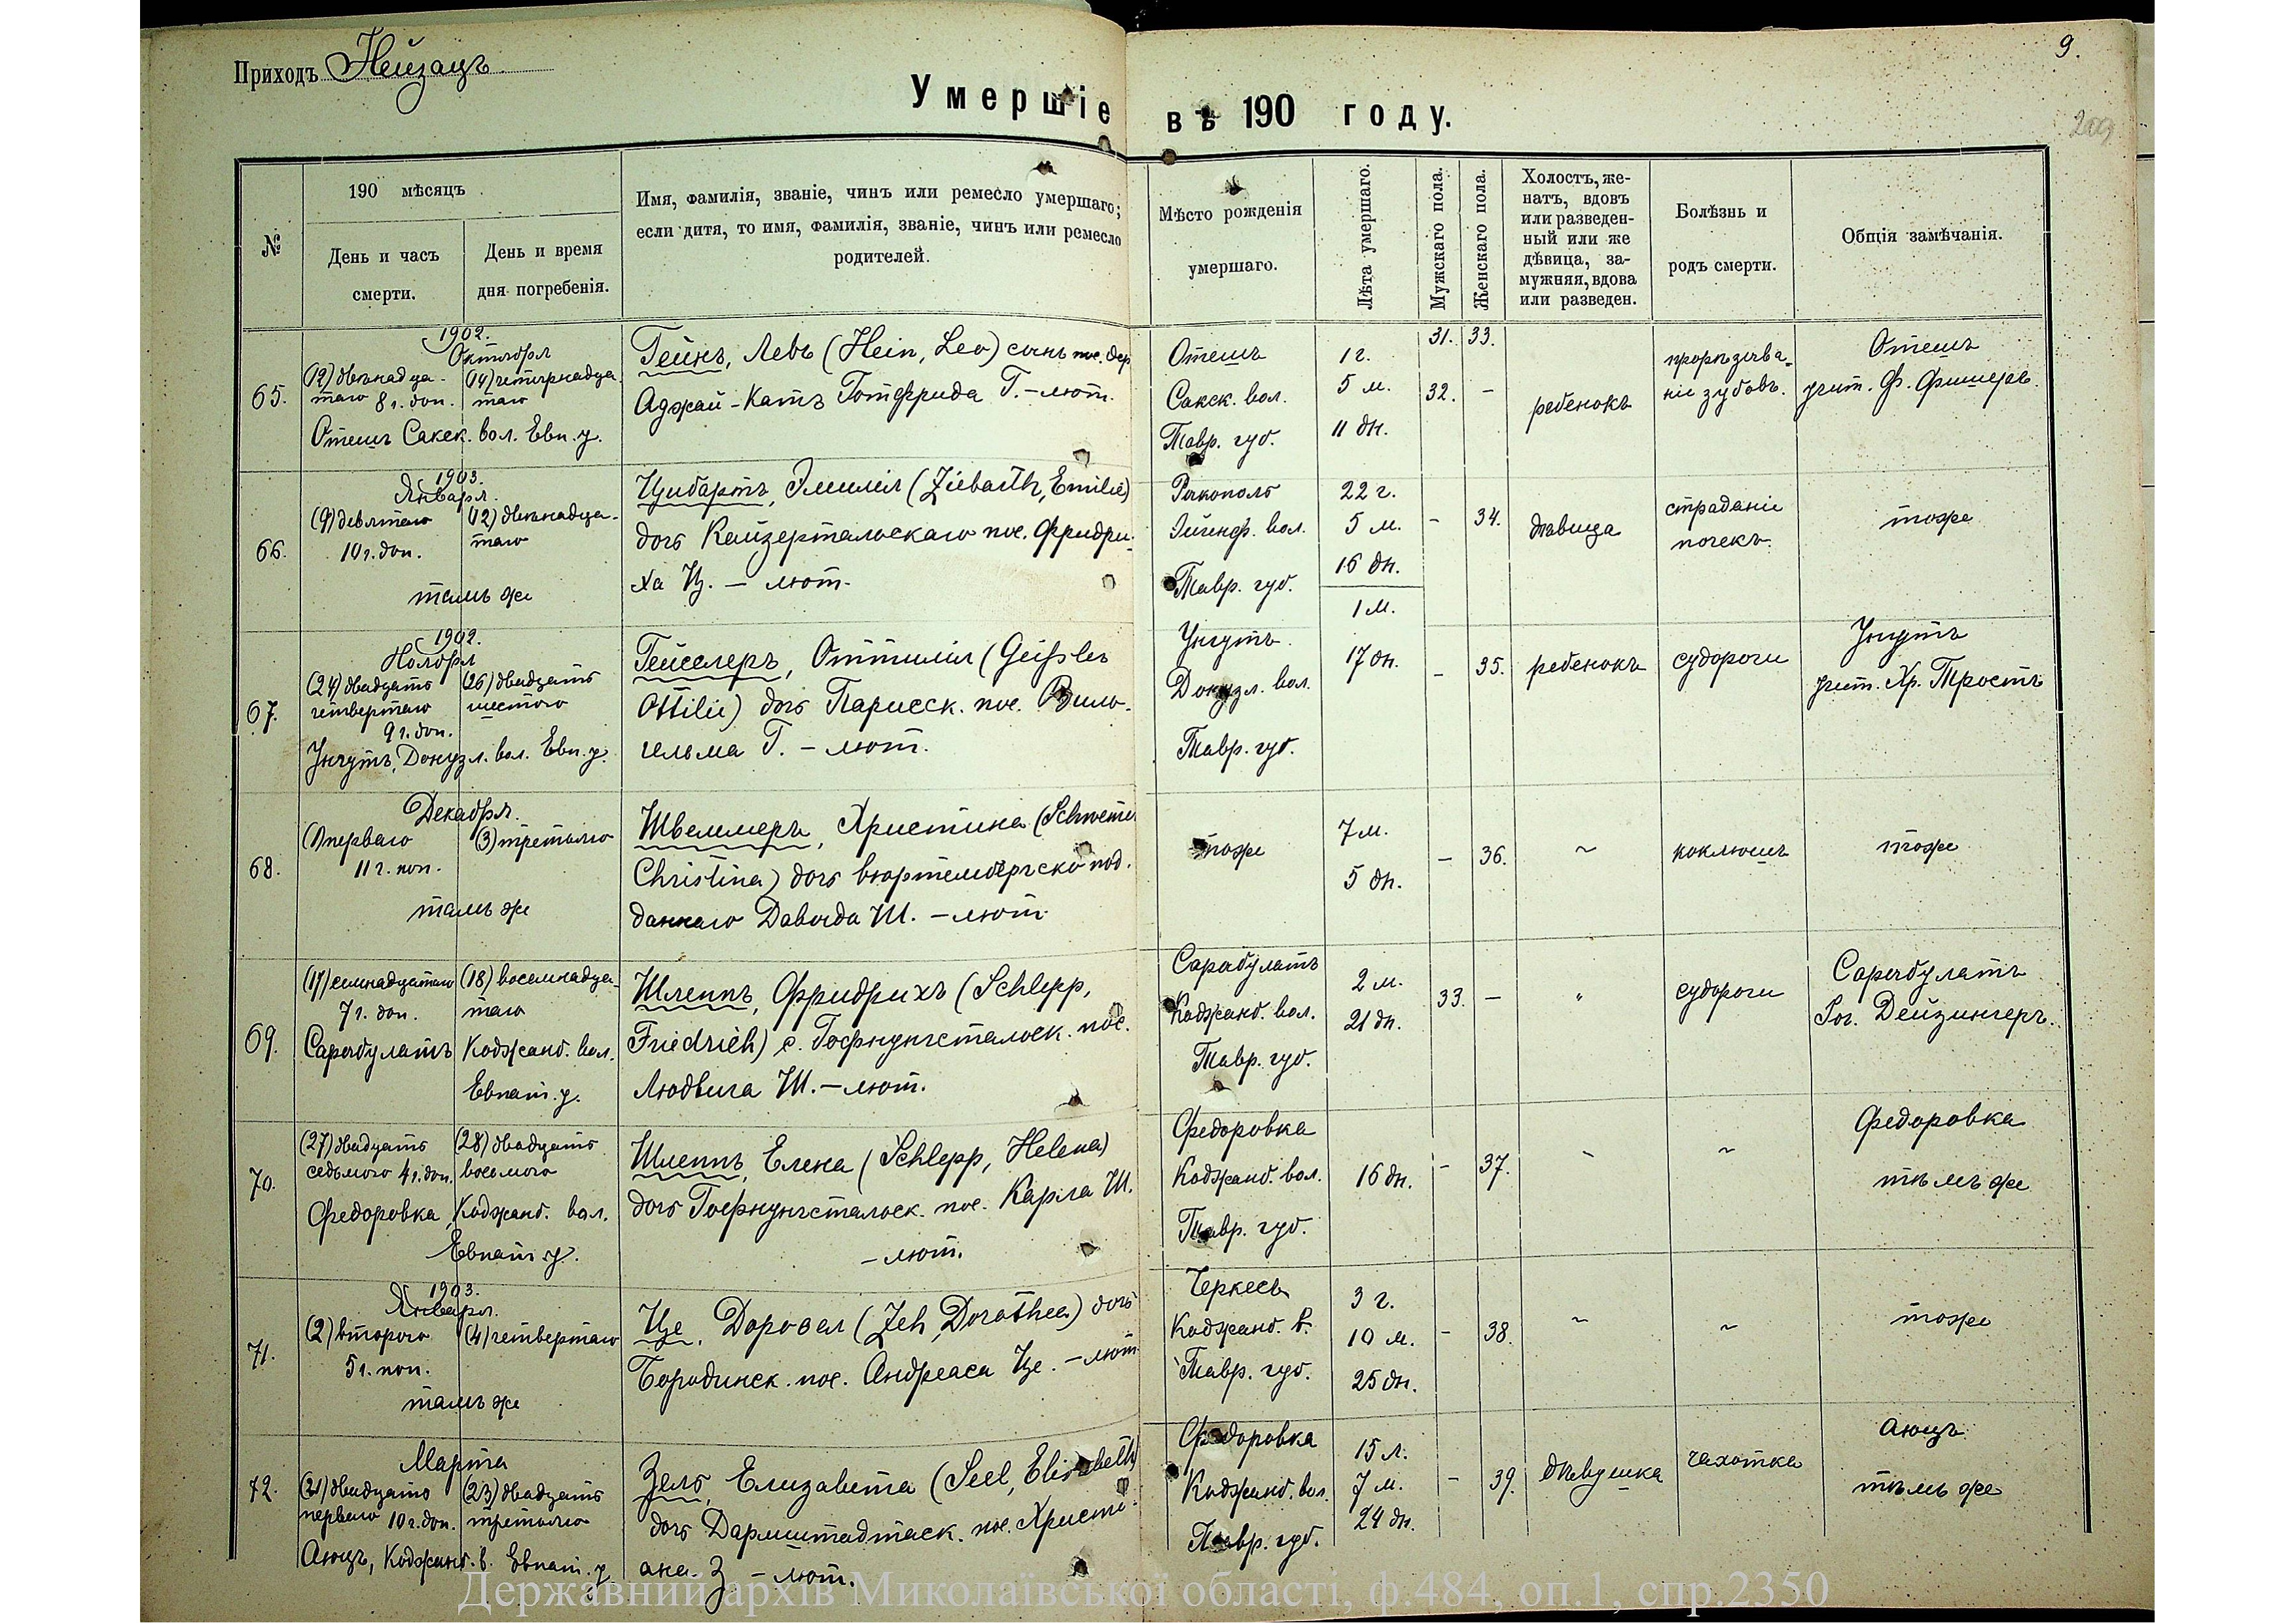 Приходъ Нейзацъ
9.
209
Умершіе въ 190 году.
№
190 мѣсяцъ
День и часъ смерти.
День и время дня погребенія.
Имя, фамилія, званіе, чинъ или ремесло умершаго;
если дитя, то имя, фамилія, званіе, чинъ или ремесло
родителей.
Мѣсто рожденія
умершаго.
Лѣта умершаго.
Мужскаго пола.
Женскаго пола.
Холостъ, же-
натъ, вдовъ
или разведен-
ный или же
дѣвица, за-
мужняя, вдова
или разведен.
Болѣзнь и
родъ смерти.
Общія замѣчанія.
31. 33.
65.
1902.
Октября
(12) двѣнадца-
таго 8 ч. доп.
(14) четырнадца-
таго
Отешъ Сакск. вол. Евп. у.
Гейнъ, Левъ (Hein, Leo) сынъ пос. дер.
Аджай-Катъ Готфрида Г. – лют.
Отешъ
Сакск. вол.
Тавр. губ.
1 г.
5 м.
11 дн.
32. –
ребенокъ
прорѣзыва-
ніе зубовъ.
Отешъ
учит. Ф. Фишеръ.
66.
1903.
Января.
(9) девятаго
10 ч. доп.
(12) двѣнадца-
таго
тамъ же
Цибартъ, Эмилія (Ziebarth, Emilie)
дочь Кейзертальскаго пос. Фридри-
ха Ц. – лют.
Эйгенф. вол.
Тавр. губ.
22 г.
5 м.
16 дн.
– 34.
дѣвица
страданіе
почекъ.
тоже
67.
1902.
Ноября
(24) двадцать
четвертаго
9 ч. доп.
(26) двадцать
шестого
Унгутъ, Донузл. вол. Евп. у.
Гейселеръ, Оттилія (Geißler
Ottilie) дочь Парижск. пос. Виль-
гельма Г. – лют.
Унгутъ
Донузл. вол.
Тавр. губ.
1 м.
17 дн.
– 35.
ребенокъ
судороги
Унгутъ
учит. Хр. Тростъ
68.
Декабря.
(1) перваго
11 ч. поп.
(3) третьяго
тамъ же
Швеммеръ, Христина (Schwemmer
Christina) дочь вюртембергско под-
даннаго Давыда Ш. – лют.
тоже
7 м.
5 дн.
– 36.
~
коклюшъ
тоже
69.
(17) семнадцатаго
7 ч. доп.
(18) восемнадца-
таго
Сарыбулатъ Коджанб. вол.
Евпат. у.
Шлеппъ, Фридрихъ (Schlepp,
Friedrich) с. Гофнунгстальск. пос.
Людвига Ш. – лют.
Сарыбулатъ
Коджанб. вол.
Тавр. губ.
2 м.
21 дн.
33. –
"
судороги
Сарыбулатъ
Дейзингеръ.
70.
(27) двадцать
седьмого 4 ч. доп.
(28) двадцать
восьмого
Федоровка, Коджанб. вол.
Евпат. у.
Шлеппъ, Елена (Schlepp, Helena)
дочь Гофнунгстальск. пос. Карла Ш.
– лют.
Федоровка
Коджанб. вол.
Тавр. губ.
16 дн.
– 37.
~
~
Федоровка
тѣмъ же
71.
1903.
Января.
(2) второго
5 ч. поп.
(4) четвертаго
тамъ же
Це, Доровея (Zeh, Dorothea) дочь
Бородинск. пос. Андреаса Це. – лют.
Черкесъ
Коджанб. в.
Тавр. губ.
3 г.
10 м.
25 дн.
– 38.
~
~
тоже
72.
Марта
(21) двадцать
перваго 10 ч. доп.
(23) двадцать
третьяго
Аюцъ, Коджанб. в. Евпат. у.
Зель, Елизавета (Seel, Elisabeth)
дочь Дармштадтск. пос. Христи-
ана З – лют.
Федоровка
Коджанб. вол.
Тавр. губ.
15 л.
7 м.
24 дн.
– 39.
дѣвушка
чахотка
Аюцъ
тѣмъ же
Державний архів Миколаївської області, ф.484, оп.1, спр.2350